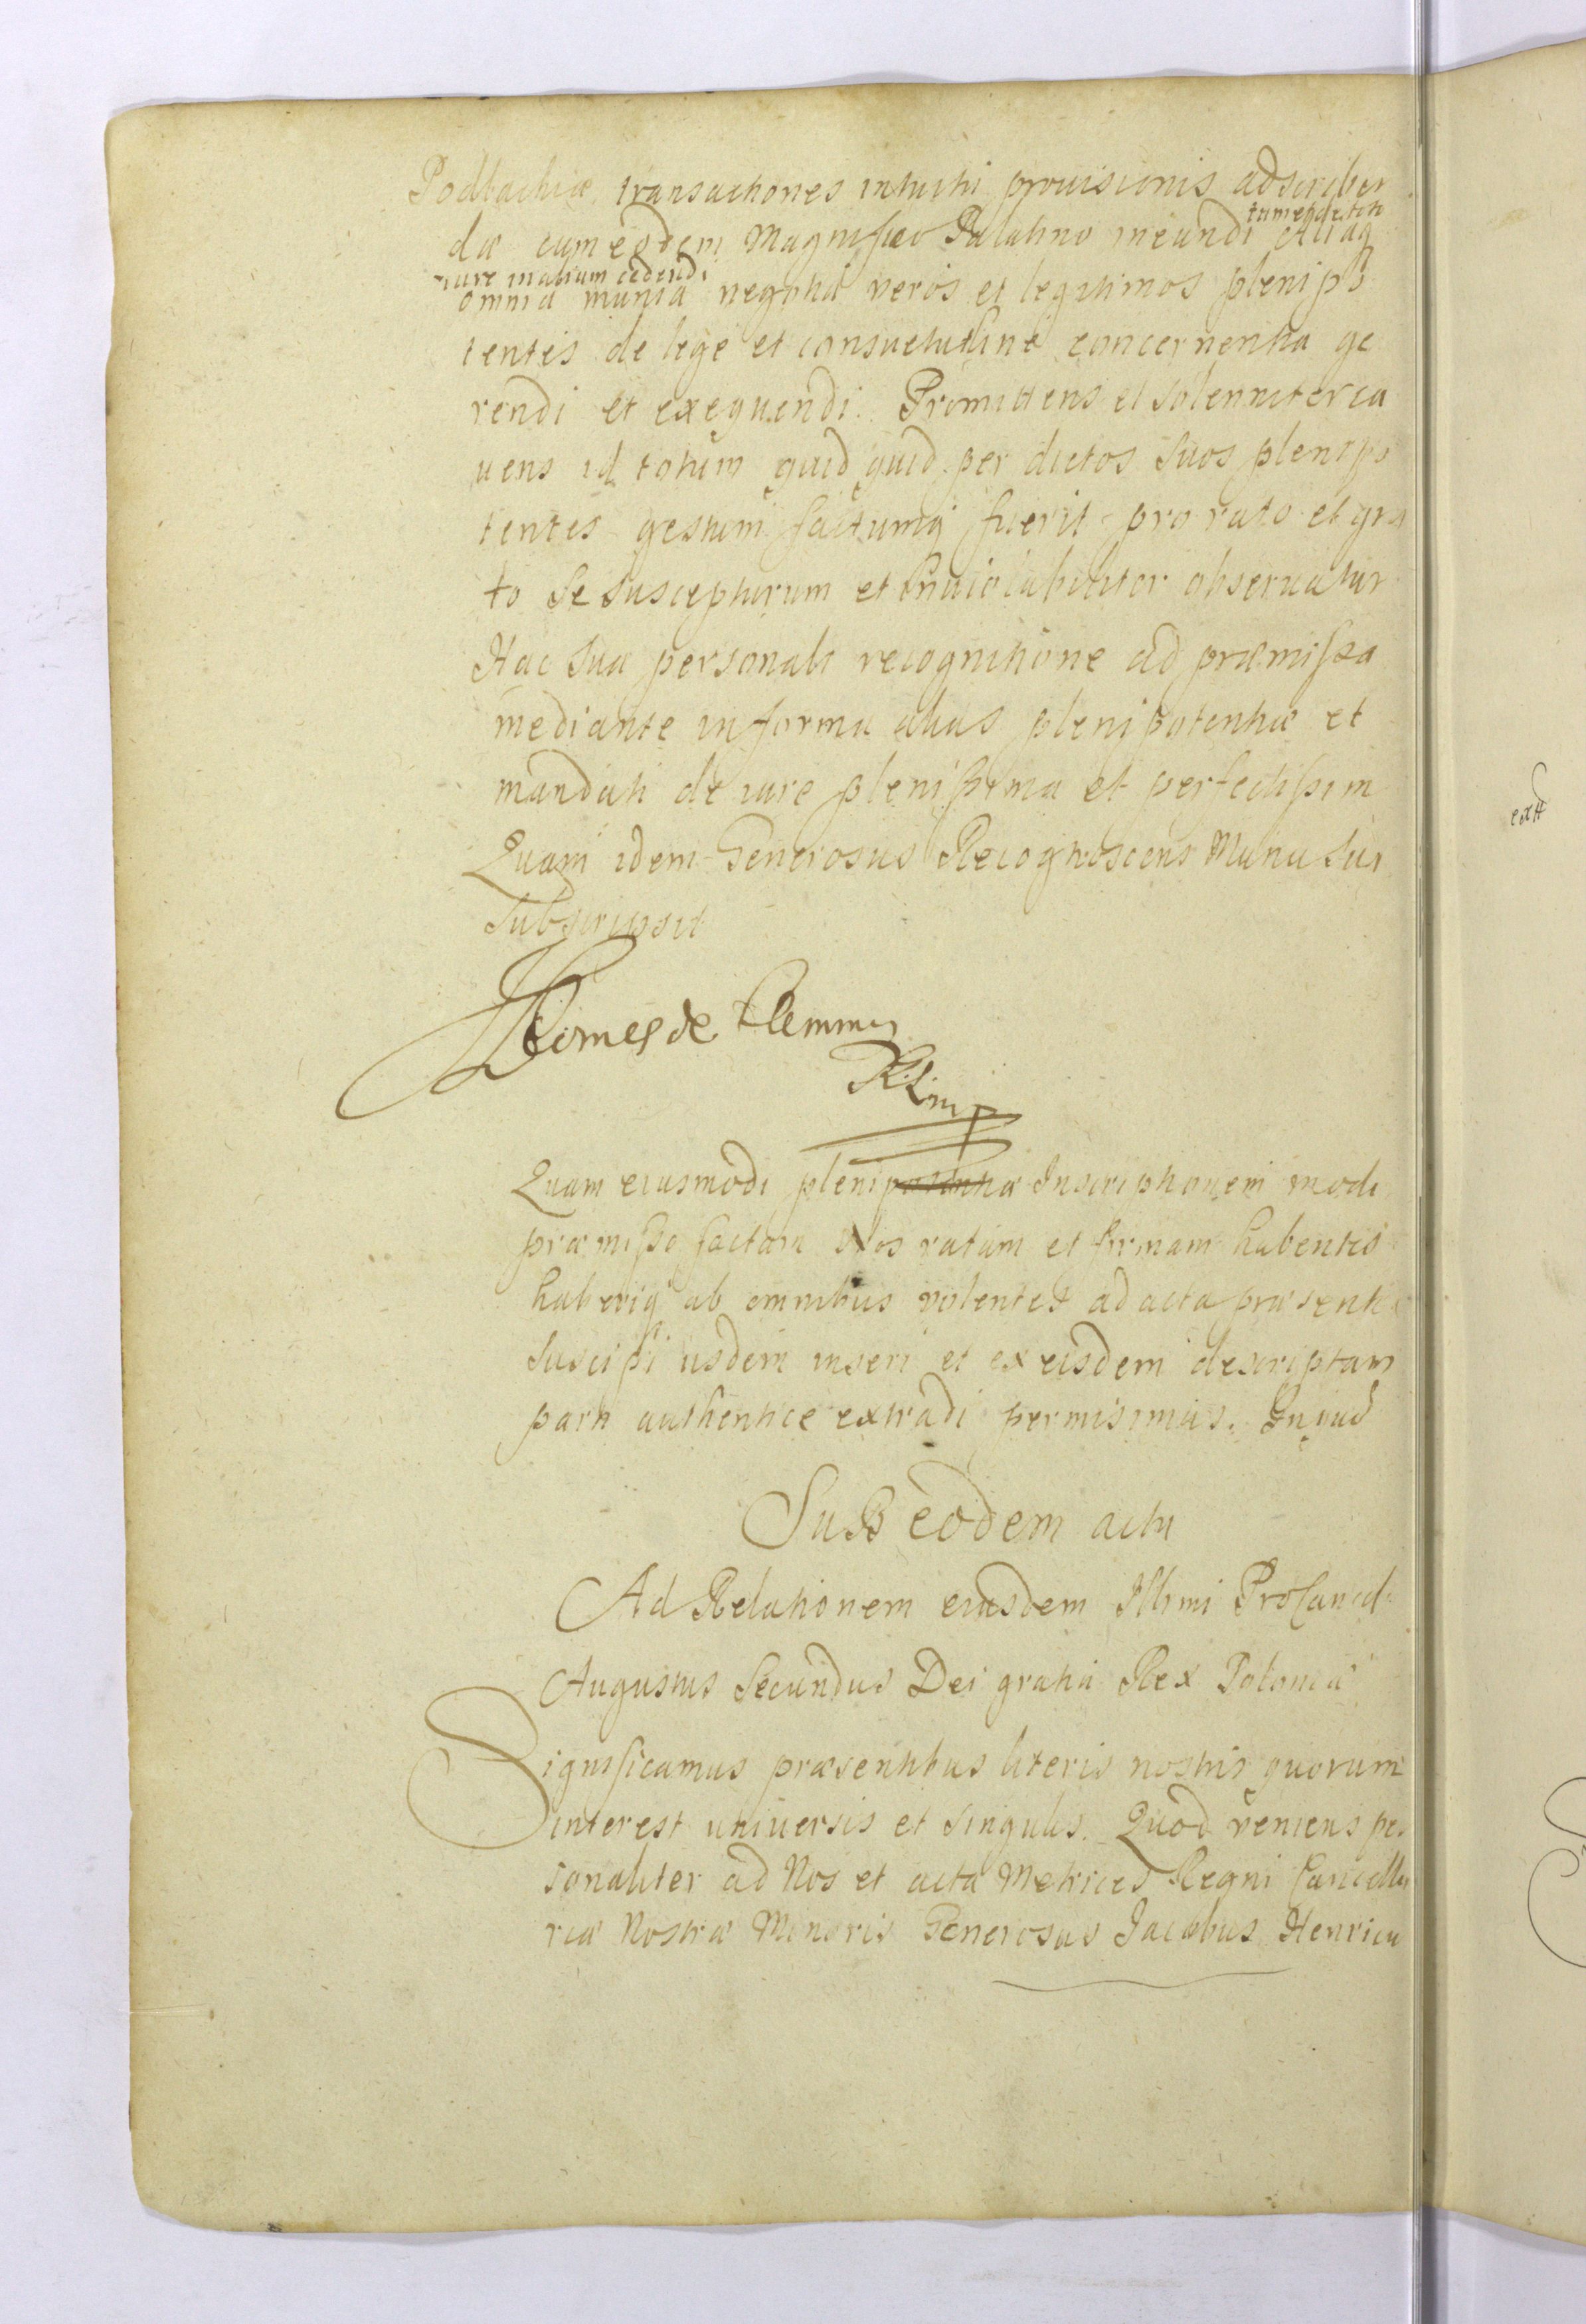 Podlachiæ transactiones intuitu prouisionis adscriben
dæ cum eodem Magnifico Palatino ineundi tumendutch Aliaq
iure inalium cedendi
omnia munia negotia veros et legitimos plenipo
tentes de lege et consuetudine concernentia ge
rendi et exequendi. Promittens et solenniter ca
uens id totum quidquid per dictos suos plenipo
tentes gestum factumq fuerit pro rato et gra
to se suscepturum et inuiolabiliter obseruatur
Hac sua personali recognitione ad præmissa
mediante in forma alias plenipotentiæ et
mandati de iure plenissima et perfectissim
Quam idem Generosus Recognoscens Manu sua
subscripsit
JHComes de Flemming
Quam eiusmodi plenipotentiæ Inscriptionem modo
præmisso factam Nos ratam et firmam habentes
haberiq ab omnibus volentes ad acta præsentia
suscipi iisdem inseri et ex eisdem descriptam
parti authentice extradi permisimus. In quod
Sub eodem actu
Ad Relationem eiusdem Illmi ProCancel
Augustus Secundus Dei gratia Rex Poloniæ
Significamus præsentibus literis nostris quorum
interest uniuersis et singulis. Quod veniens per
sonaliter ad Nos et acta Metrices Regni Cancella
riæ Nostræ Minoris Generosus Jacobus Henricu
extt